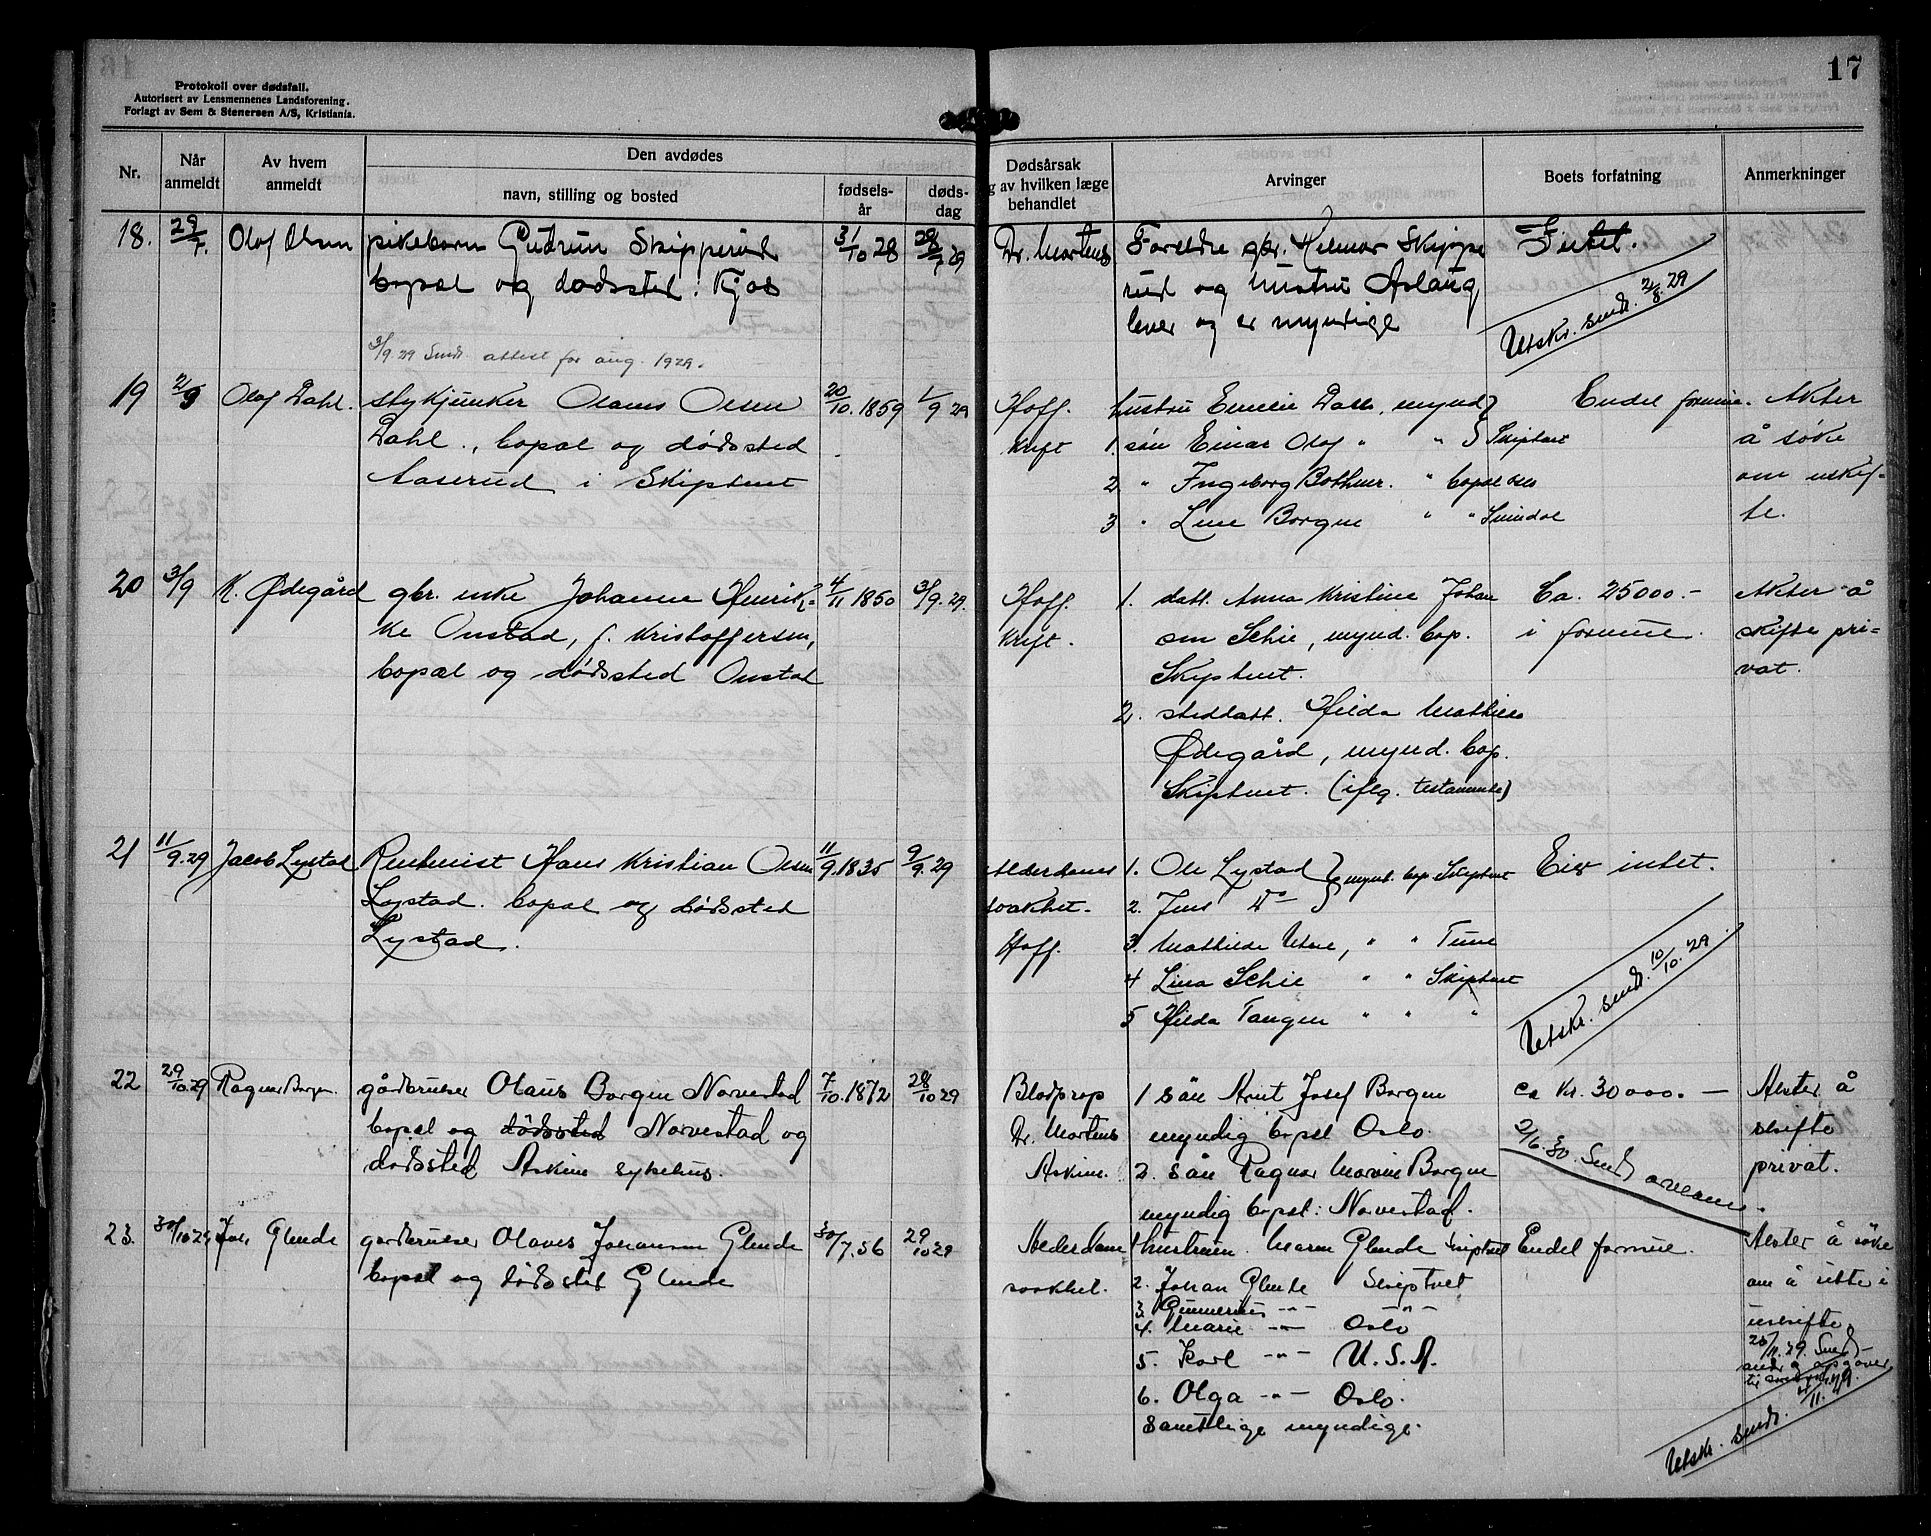 17
Protokoll over dødsfall.
Autorisert av Lensmennenes Landsforening.
Forlagt av Sem & Stenersen A/S, Kristiania.
Nr.
Når anmeldt
Av hvem anmeldt
Den avdødes
navn, stilling og bosted
fødsels-år
døds-dag
Dødsårsak
og av hvilken læge
behandlet
Arvinger
Boets forfatning
Anmerkninger
18. 29/7. Olof Olsen pikebarn Gudrun Skipperud 31/10 28 28/7 29
bopæl og dødssted:
Dr. Mortens Foreldre gbr. Helmar Skippe
rud og hustru Aslaug,
lever og er myndige
Intet.
Utskr. sendt. 2/8. 29
3/9.29 Sendt attest for aug. 1929.
19 2/9 Olof Dahl. Olaus Olsen 20/10. 1859 1/9 29
Dahl., bopæl og dødssted
Aaserud i Skiptvet
Hoff.
Kreft
hustru Dahl, mynd
1. søn Einar Olof " " Skiptvet
2 " Ingeborg " bopæl
3 " Borgen " "
Endel formue.
Akter
å søke
om uskif-
te.
20 3/9 K. Ødegård gbr. enke Johanne Henrik- 4/11 1850 3/9. 29.
ke Onstad, f. Kristoffersen,
bopæl og dødssted Onstad
Hoff.
Kreft.
1. datt. Anna Kristine Johan
sen Schie, mynd. bop.
Skiptvet.
2. steddatt. Hilda Mathilde
Ødegård, mynd. bop.
Skiptvet. (iflg. testamente)
Ca. 25000.-
i formue.
Akter å
skifte pri-
vat.
21 11/9.29 Jacob Lystad Hans Kristian Olsen 11/9.1835 9/9.29
Lystad. bopæl og dødssted
Lystad.
Alderdoms
svakhet.
Hoff.
1. Ole Lystad mynd. bop Skiptvet
2. Jens Do
3. Mathilde Utne, " " Tune
4 Lina Schie " " Skiptvet
5 Hilda Tangen " " "
Eier intet.
Utskr. sendt. 10/10. 29
22 29/10.29 Ragnar Borgen. gårdbruker Olaus Borgen Norvestad 7/10.1872 28/10 29
bopæl og dødssted Norvestad og
dødssted Askim sykehus.
Blodprop
Dr. Mortens
Askim.
1 søn Arnt Josef Borgen
myndig bopæl Oslo.
2. søn Ragnar Marius Borgen
myndig bopæl: Norvestad.
ca Kr. 30000.-
2/6.30. Sendt
Akter å
skifte
privat.
23. 30/10 29 Joh Glende gårdbruker Olaves Johansen Glende 30/7.56 29/10 29
bopæl og dødssted Glende
Alderdom
svakhet.
1 hustruen. Maren Glende Skiptvet
2. Johan Glende Skiptvet
3. Gunnerius -"- -"-
4. Marie -"- Oslo
5. Karl -"- U.S.A.
6. Olga -"- Oslo.
Samtlige myndige.
Endel formue.
Akter å søke
om å sitte i
uskifte.
20/11.29. Sendt
Utskr. sendt. 4/11. 29.